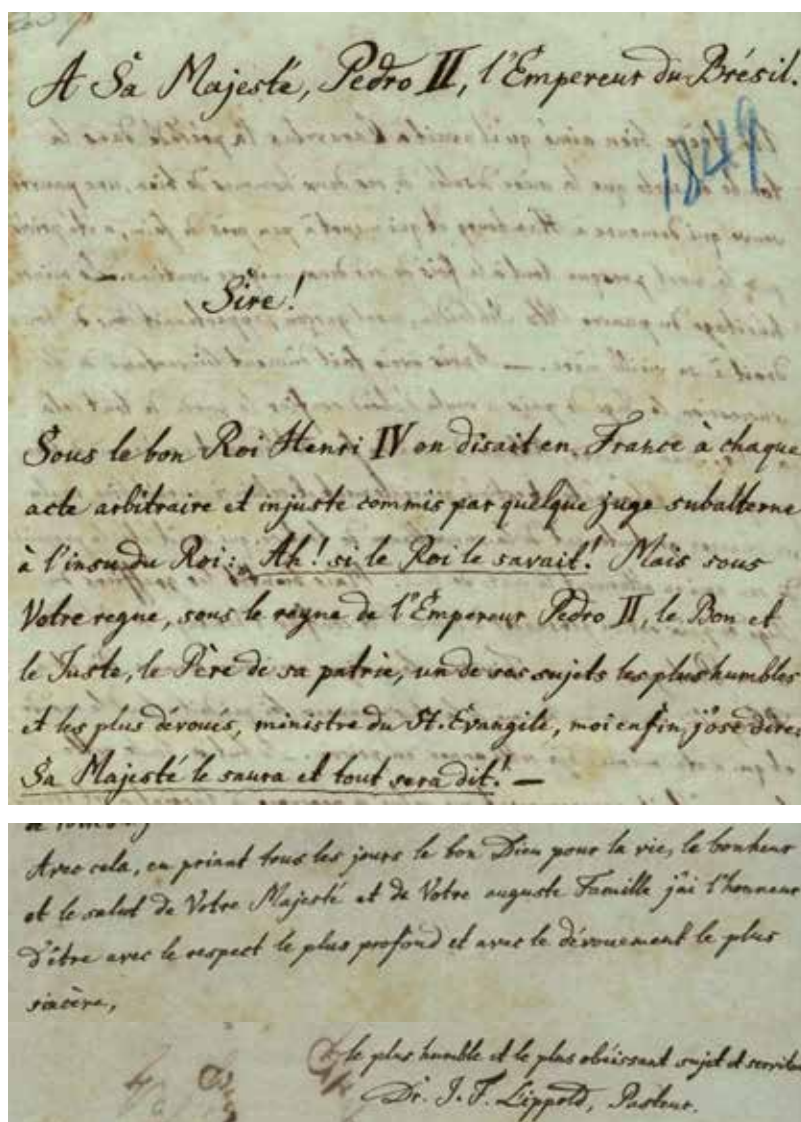 A Sa Majesté, Pedro II, l'Empereur du Brésil.
1849
Sire!
Sous le bon Roi Henri IV on disait en France à chaque
acte arbitraire et injuste commis par quelque juge subalterne
à l'insu du Roi: Ah! si le Roi le savait! Mais sous
Votre regne, sous le règne de l'Empereur Pedro II, le Bon et
le Juste, le Père de sa patrie, un de ses sujets les plus humbles
et les plus dévoués, ministre du St. Evangile, moi enfin, j'ose dire:
Sa Majesté le saura et tout sera dit! —
Avec cela, en priant tous les jours le bon Dieu pour la vie, le bonheur
et le salut de Votre Majesté et de Votre auguste Famille j'ai l'honneur
d'être avec le respect le plus profond et avec le dévouement le plus
sincère,
le plus humble et le plus obéissant sujet et
Dr. J. F. Lippold, Pasteur.